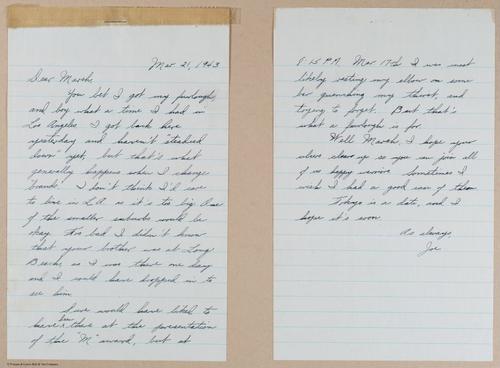 Mar 21, 1943
Dear Marsh,
You bet I got my furlough,
and boy what a time I had in
Los Angeles. I got back here
yesterday and haven't "steadied
down" yet, but that's what
generally happens when I change
brands. I don't think I'd care
to live in L.A. as it's to big. One
of the smaller suburbs would be
okay. Too bad I didn't know
that your brother was at Long
Beach, as I was there one day
and I could have dropped in to
see him.
Sure would have liked to
have been there at the presentation
of the "M" award, but at
8:15 P.M. Mar 17th I was most
likely resting my elbow on some
bar quenching my throat, and
trying to forget. But that's
what a furlough is for.
Well Marsh, I hope your
sinus clears up so you can join all
of us happy warriors. Sometimes I
wish I had a good case of them.
Tokyo is a date, and I
hope it's soon.
As always,
Joe